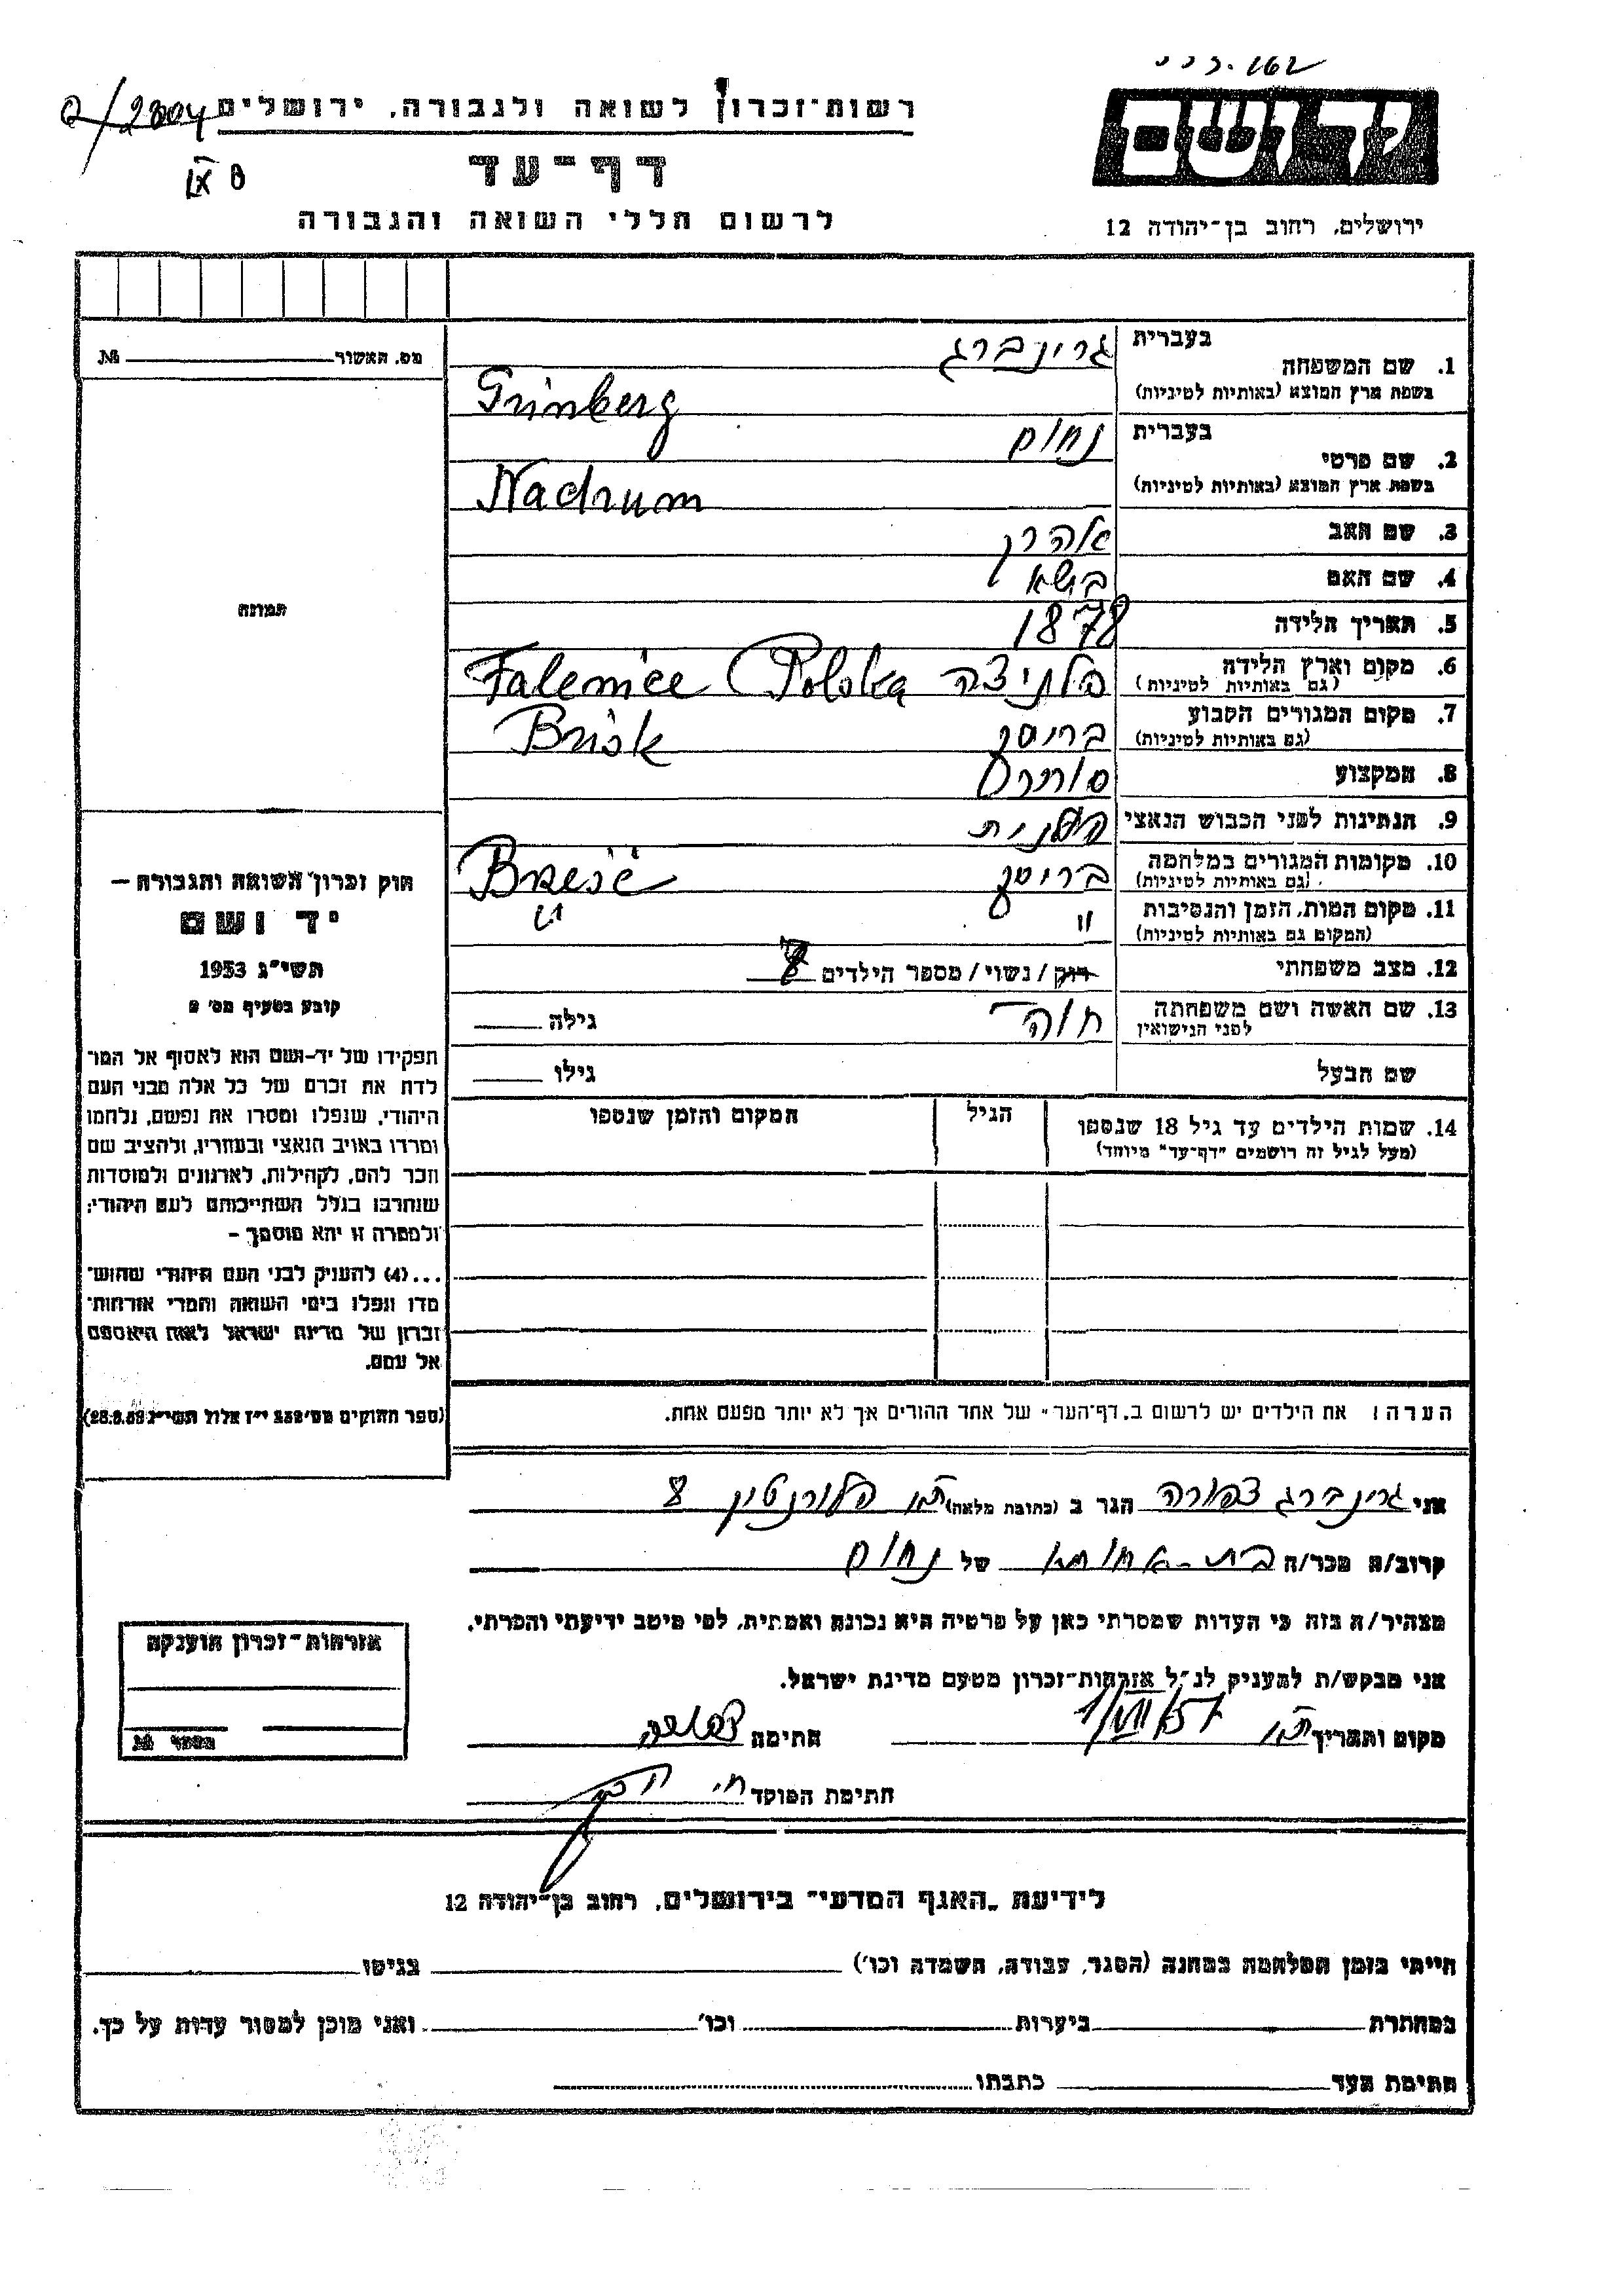 רשות־זכרון לשואה ולגבורה, ירושלים
דף־עד
לרשום חללי השואה והגבורה
יד ושם
ירושלים, רחוב בן־יהודה 12
IX 8
מס. האשור № 
תמונה
1. שם המשפחה
בעברית גרינברג
בשפת ארץ המוצא (באותיות לטיניות) Grinberg
2. שם פרטי
בעברית נחום
בשפת ארץ המוצא (באותיות לטיניות) Nachum
3. שם האב אהרן
4. שם האם בשא
5. תאריך הלידה 1878
6. מקום וארץ הלידה פלניצה Falenice Polska
(גם באותיות לטיניות)
7. מקום המגורים הקבוע בריסק Brisk
(גם באותיות לטיניות)
8. המקצוע סוחר
9. הנתינות לפני הכבוש הנאצי פולנית
10. מקומות המגורים במלחמה בריסק Brześć
(גם באותיות לטיניות)
11. מקום המות, הזמן והנסיבות "
(המקום גם באותיות לטיניות)
12. מצב משפחתי רוק / נשוי / מספר הילדים 8
13. שם האשה ושם משפחתה חוה גילה
לפני הנישואין
שם הבעל גילו
14. שמות הילדים עד גיל 18 שנספו הגיל המקום והזמן שנספו
(מעל לגיל זה רושמים "דף־עד" מיוחד)
הערה: את הילדים יש לרשום ב„דף־העד" של אחד ההורים אך לא יותר מפעם אחת.
חוק זכרון השואה והגבורה –
יד ושם
תשי"ג 1953
קובע בסעיף מס' 2
תפקידו של יד-ושם הוא לאסוף אל המו־
לדת את זכרם של כל אלה מבני העם
היהודי, שנפלו ומסרו את נפשם, נלחמו
ומרדו באויב הנאצי ובעוזריו, ולהציב שם
וזכר להם, לקהילות, לארגונים ולמוסדות
שנחרבו בגלל השתייכותם לעם היהודי;
ולמטרה זו יהא מוסמך –
...(4) להעניק לבני העם היהודי שהוש־
מדו ונפלו בימי השואה והמרי אזרחות־
זכרון של מדינת ישראל לאות היאספם
אל עמם.
(ספר החוקים מס' 132 י"ז אלול תשי"ג 28.8.53)
אני גרינברג צפורה הגר ב (כתובת מלאה) ת"א פלורנטין 8
קרוב/ה מכר/ה בת-אחות של נחום
מצהיר/ה בזה כי העדות שמסרתי כאן על פרטיה היא נכונה ואמתית, לפי מיטב ידיעתי והכרתי.
אני מבקש/ת להעניק לנ"ל אזרחות־זכרון מטעם מדינת ישראל.
מקום ותאריך ת"א 1/VII/57 חתימה צפורה
חתימת הפוקד
אזרחות־זכרון הוענקה
מספר №
לידיעת „האגף המדעי" בירושלים, רחוב בן־יהודה 12
הייתי בזמן המלחמה במחנה (הסגר, עבודה, השמדה וכו') בגיטו
במחתרת ביערות וכו' ואני מוכן למסור עדות על כך.
חתימת העד כתבתו